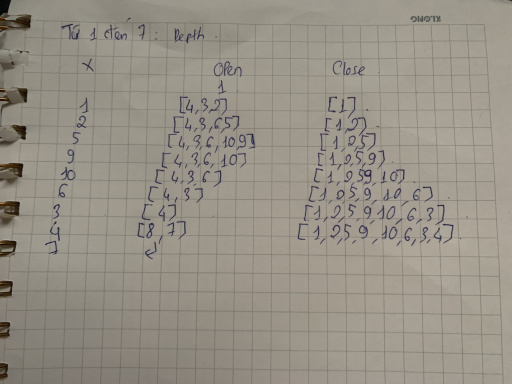 KLONG
Từ 1 đến 7 : Depth.
X Open Close
1
1 [4,3,2] [1].
2 [4,3,6,5] [1,2].
5 [4,3,6,10,9] [1,2,5].
9 [4,3,6,10] [1,2,5,9].
10 [4,3,6] [1,2,5,9,10].
6 [4,3] [1,2,5,9,10,6].
3 [4] [1,2,5,9,10,6,3].
4 [8,7] [1,2,5,9,10,6,3,4].